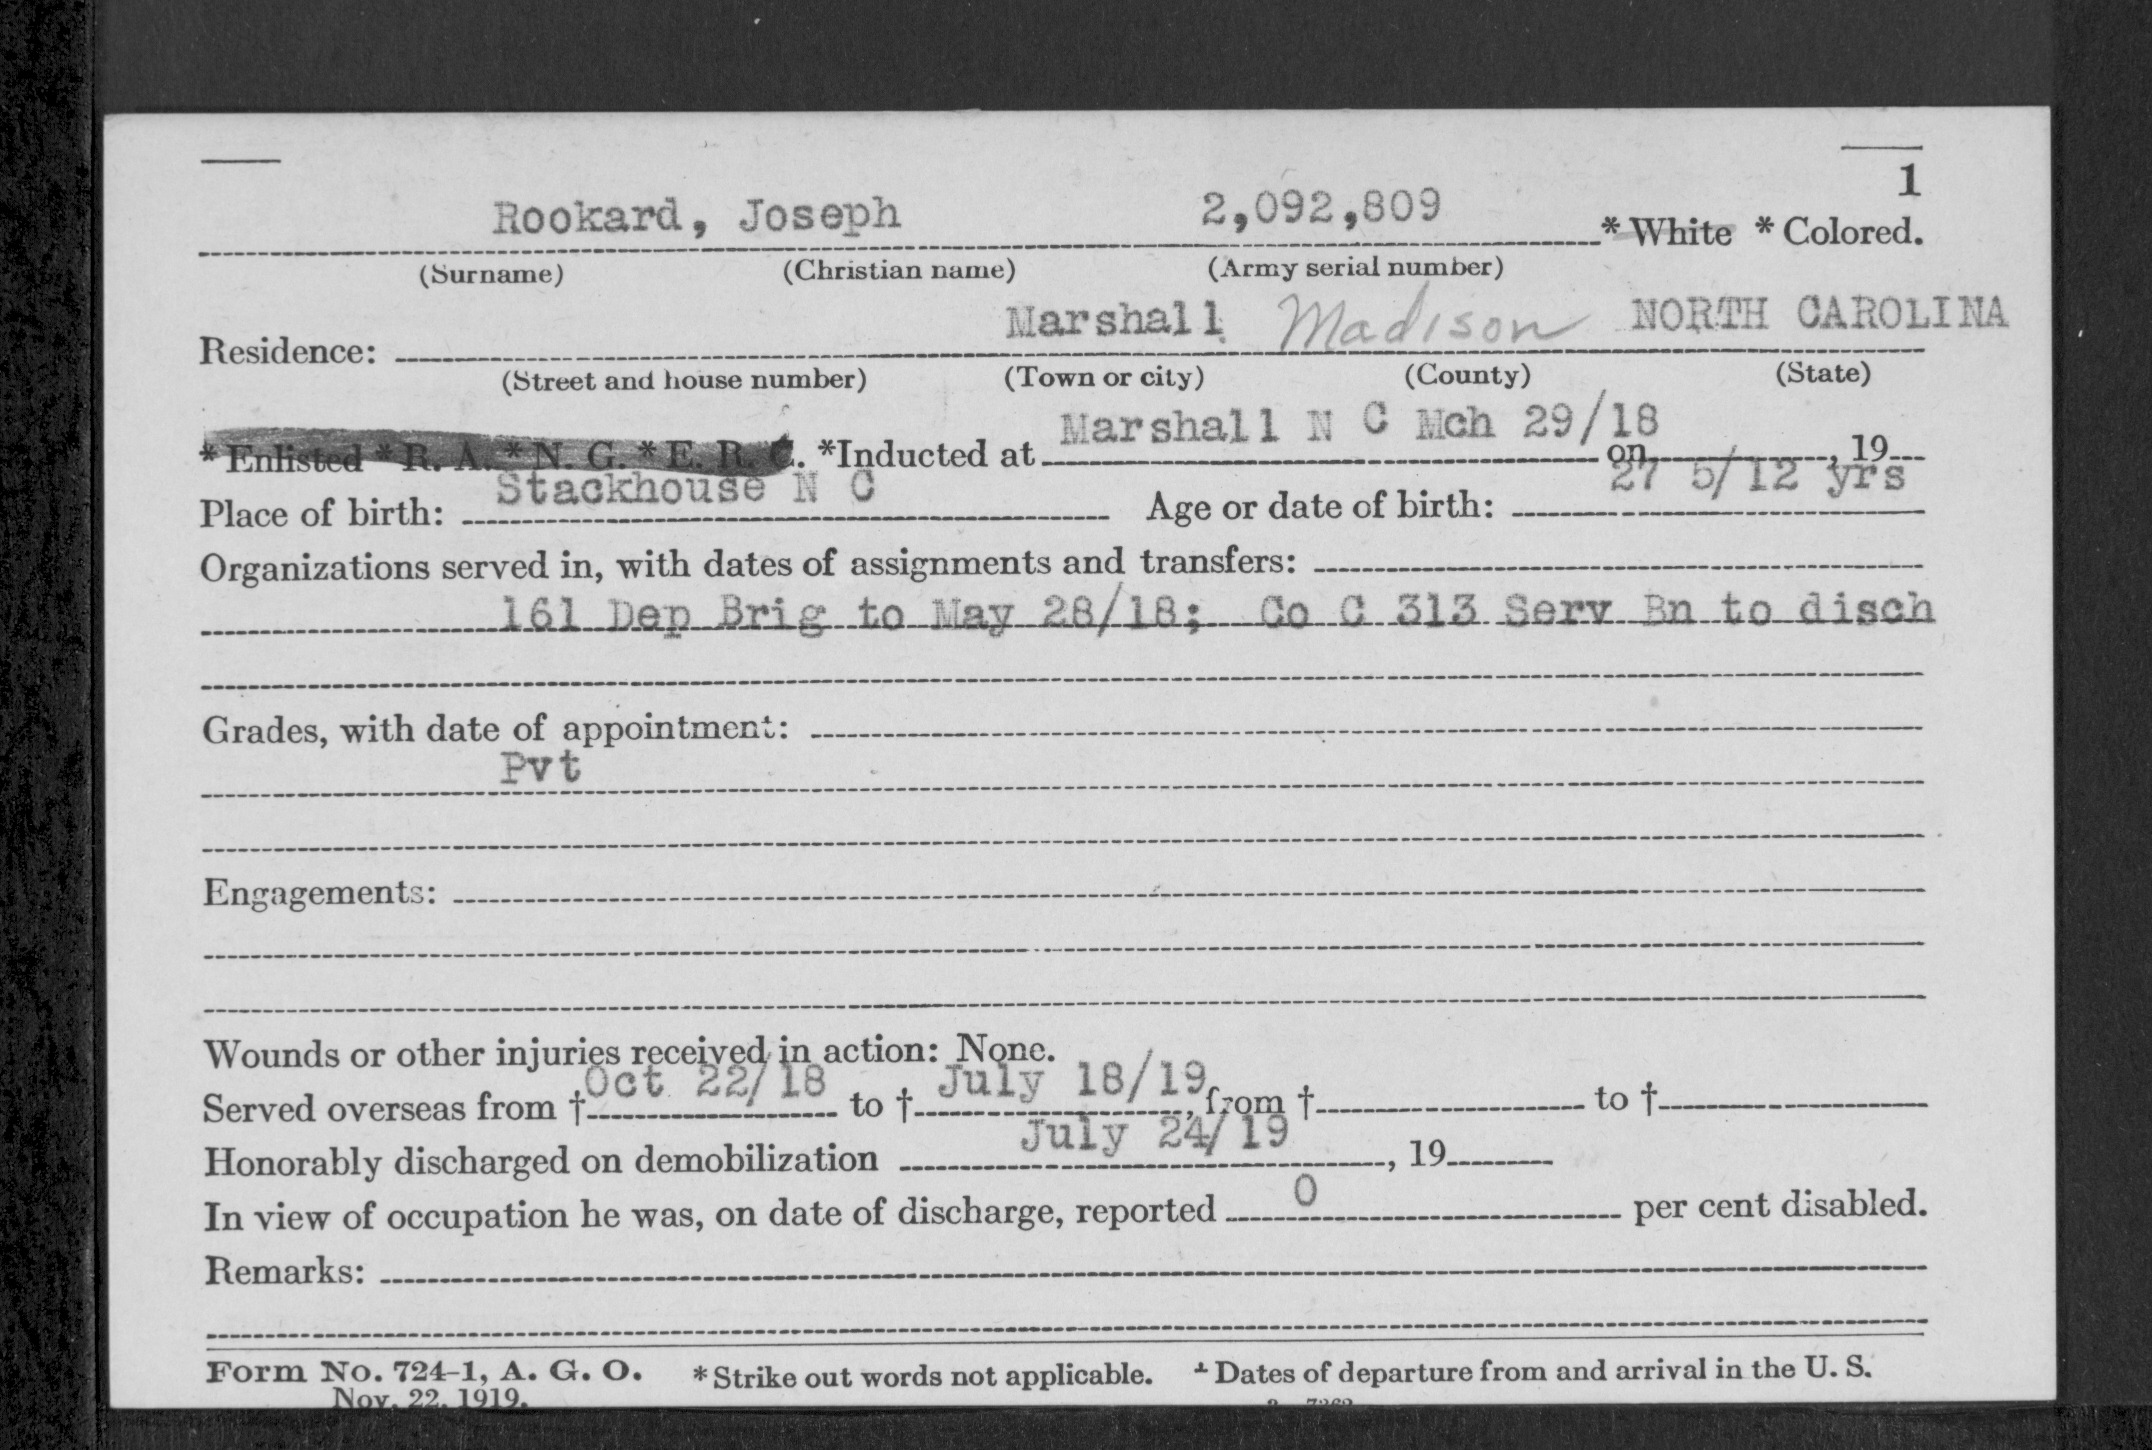 1
Rookard, Joseph 2,092,809 * White * Colored.
(Surname) (Christian name) (Army serial number)
Residence: Marshall Madison NORTH CAROLINA
(Street and house number) (Town or city) (County) (State)
* Enlisted * R. A. * N. G. * E. R. C. *Inducted at Marshall N C Mch 29/18 on , 19
Place of birth: Stackhouse N C Age or date of birth: 27 5/12 yrs
Organizations served in, with dates of assignments and transfers:
161 Dep Brig to May 28/18; Co C 313 Serv Bn to disch
Grades, with date of appointment:
Pvt
Engagements:
Wounds or other injuries received in action: None.
Served overseas from † Oct 22/18 to † July 18/19, from † to †
Honorably discharged on demobilization July 24/19 , 19
In view of occupation he was, on date of discharge, reported 0 per cent disabled.
Remarks:
Form No. 724-1, A. G. O. * Strike out words not applicable. † Dates of departure from and arrival in the U. S.
Nov. 22, 1919.